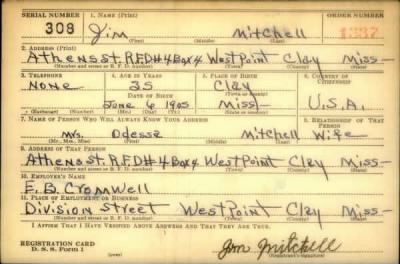 SERIAL NUMBER 1. NAME (Print) ORDER NUMBER
308 Jim Mitchell 1337
(First) (Middle) (Last)
2. ADDRESS (Print)
Athens st. R.F.D #4 Box 4 West Point Clay Miss-
(Number and street or R. F. D. number) (Town) (County) (State)
3. TELEPHONE 4. AGE IN YEARS 5. PLACE OF BIRTH 6. COUNTRY OF CITIZENSHIP
None 35 Clay
DATE OF BIRTH (Town or county)
June 6 1905 Miss- U.S.A.
(Exchange) (Number) (Mo.) (Day) (Yr.) (State or country)
7. NAME OF PERSON WHO WILL ALWAYS KNOW YOUR ADDRESS 8. RELATIONSHIP OF THAT PERSON
Mrs. Odessa Mitchell Wife
(Mr., Mrs., Miss) (First) (Middle) (Last)
9. ADDRESS OF THAT PERSON
Athens st. R.F.D #4 Box 4 West Point Clay Miss-
(Number and street or R. F. D. number) (Town) (County) (State)
10. EMPLOYER'S NAME
E. B. Cromwell
11. PLACE OF EMPLOYMENT OR BUSINESS
Division Street West Point Clay Miss-
(Number and street or R. F. D. number) (Town) (County) (State)
I AFFIRM THAT I HAVE VERIFIED ABOVE ANSWERS AND THAT THEY ARE TRUE.
REGISTRATION CARD
D. S. S. Form 1 Jim Mitchell